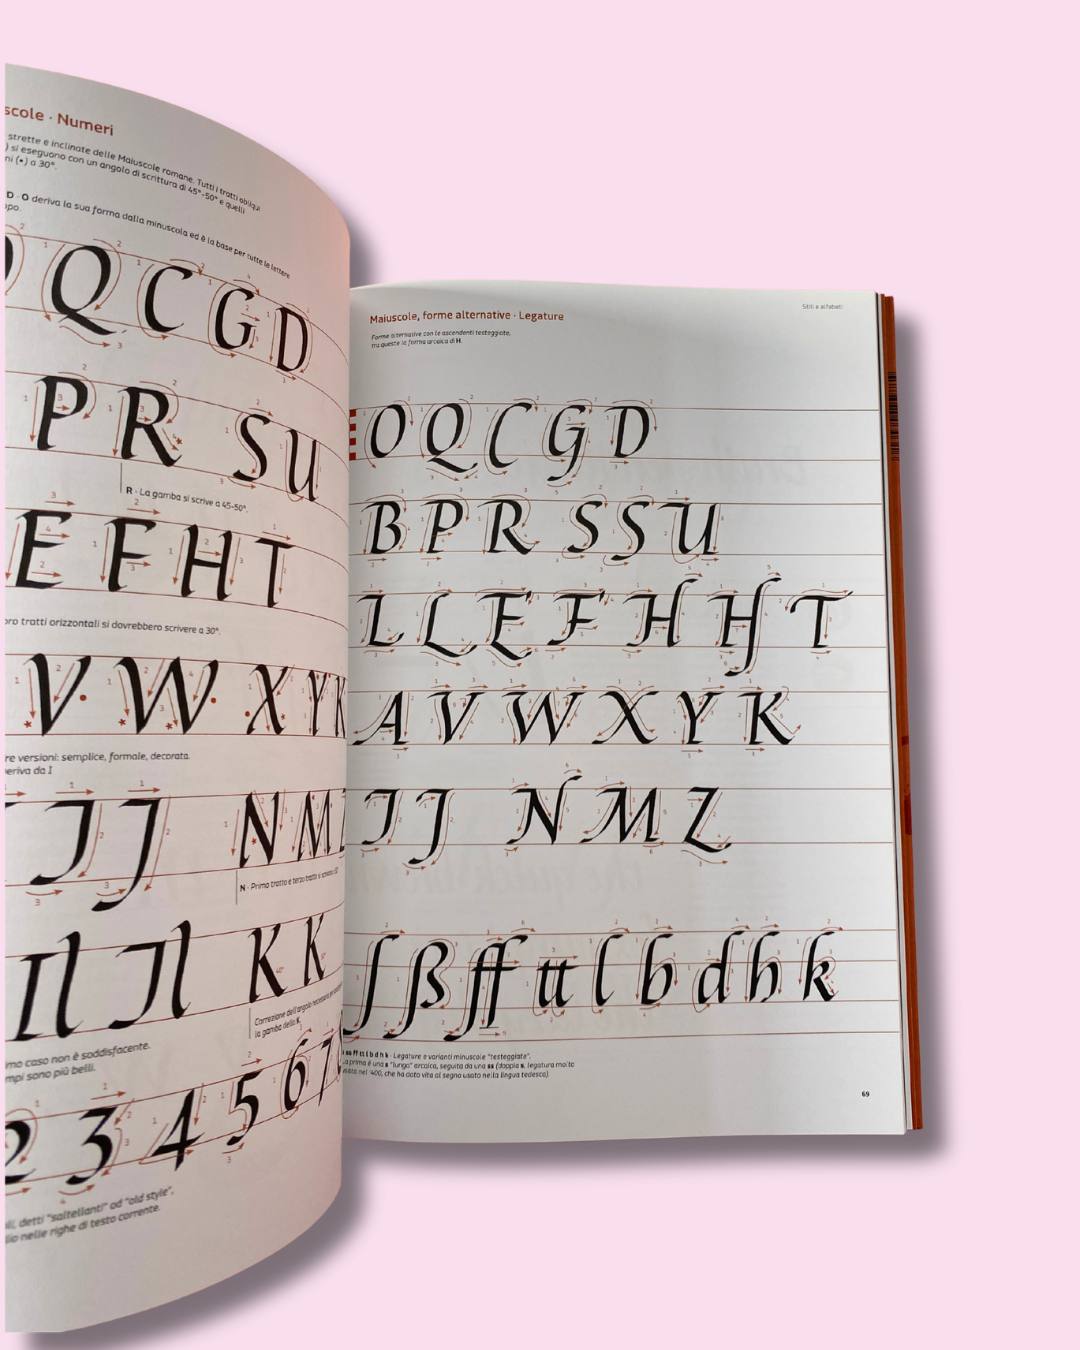 scole · Numeri
strette e inclinate delle Maiuscole romane. Tutti i tratti obliqui
) si eseguono con un angolo di scrittura di 45°-50° e quelli
ni (•) a 30°.
D · O deriva la sua forma dalla minuscola ed è la base per tutte le lettere
Q C G D
P R S U
R · La gamba si scrive a 45-50°.
E F H T
oro tratti orizzontali si dovrebbero scrivere a 30°.
V W X Y K
re versioni: semplice, formale, decorata.
eriva da I
J J N M
N · Primo tratto e terzo tratto si
Il Jl K K
Correzione dell'angolo necessaria per
la gamba della K.
imo caso non è soddisfacente.
mpi sono più belli.
2 3 4 5 6 7
oli, detti "saltellanti" od "old style",
lio nelle righe di testo corrente.
Stili e alfabeti
Maiuscole, forme alternative · Legature
Forme alternative con le ascendenti testeggiate,
tra queste la forma arcaica di H.
O Q C G D
B P R S S U
L L E F H H T
A V W X Y K
J J N M Z
ſ ß ff tt l b d h k
ff tt l b d h k · Legature e varianti minuscole "testeggiate".
La prima è una s "lunga" arcaica, seguita da una ss (doppia s, legatura molto
usata nel '400, che ha dato vita al segno usato nella lingua tedesca).
69